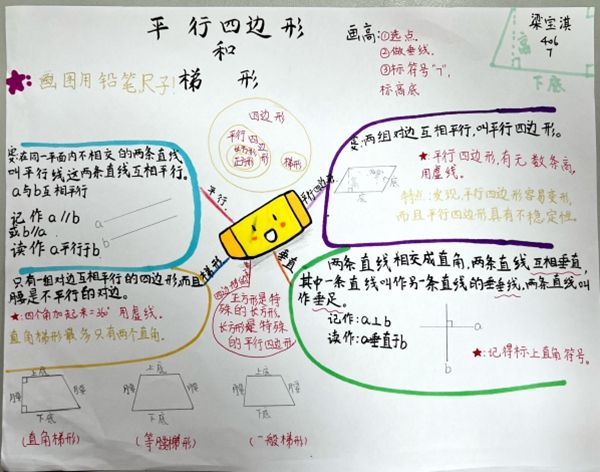 平行四边形
和
梯形
★:画图用铅笔尺子!
画高:①选点.
②做垂线.
③标符号"ㄱ",
标高底
梁宝淇
406
7
高
下底
四边形
平行四边形
长方形
正方形
梯形
平行
平行四边形
梯形
垂直
四边形
在同一平面内不相交的两条直线
叫平行线,这两条直线互相平行。
a与b互相平行
记作a//b
或b//a
读作a平行于b
a
b
两组对边互相平行,叫平行四边形。
★:平行四边形,有无数条高,
用虚线。
特点:发现,平行四边形容易变形,
而且平行四边形具有不稳定性。
高
底
底
只有一组对边互相平行的四边形,而且
腰是不平行的对边。
★:四个角加起来=360° 用虚线.
直角梯形最多只有两个直角.
正方形是特
殊的长方形,
长方形是特殊
的平行四边形
两条直线相交成直角,两条直线互相垂直,
其中一条直线叫作另一条直线的垂线,两条直线叫
作垂足。
记作:a⊥b
读作:a垂直于b
a
b
★:记得标上直角符号。
上底
腰
腰
下底
(直角梯形)
上底
腰
腰
下底
(等腰梯形)
上底
腰
腰
下底
(一般梯形)